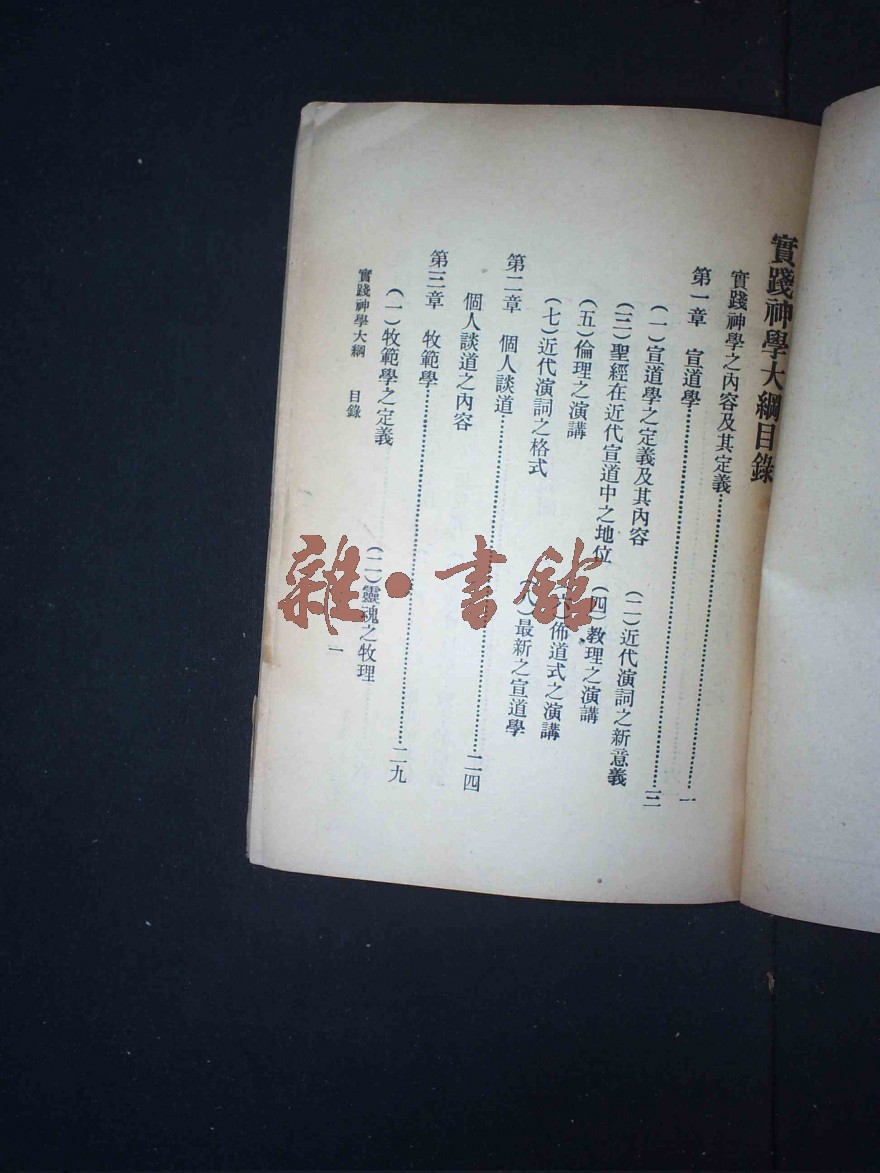 實踐神學大綱目錄
實踐神學之內容及其定義⋯⋯⋯⋯一
第一章 宣道學⋯⋯⋯⋯三
(一)宣道學之定義及其內容 (二)近代演詞之新意義
(三)聖經在近代宣道中之地位 (四)教理之演講
(五)倫理之演講 (六)佈道式之演講
(七)近代演詞之格式 (八)最新之宣道學
第二章 個人談道⋯⋯⋯⋯二四
個人談道之內容
第三章 牧範學⋯⋯⋯⋯二九
(一)牧範學之定義 (二)靈魂之牧理
實踐神學大綱 目錄 一
雜·書館